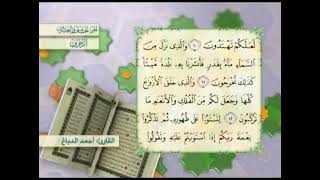 الجزء الخامس والعشرون
الزخرف
لَعَلَّكُمْ تَهْتَدُونَ ١٠ وَالَّذِي نَزَّلَ مِنَ
السَّمَاءِ مَاءً بِقَدَرٍ فَأَنشَرْنَا بِهِ بَلْدَةً مَّيْتًا
كَذَٰلِكَ تُخْرَجُونَ ١١ وَالَّذِي خَلَقَ الْأَزْوَاجَ
كُلَّهَا وَجَعَلَ لَكُم مِّنَ الْفُلْكِ وَالْأَنْعَامِ مَا
تَرْكَبُونَ ١٢ لِتَسْتَوُوا عَلَىٰ ظُهُورِهِ ثُمَّ تَذْكُرُوا
نِعْمَةَ رَبِّكُمْ إِذَا اسْتَوَيْتُمْ عَلَيْهِ وَتَقُولُوا
القارئ: أحمد الدباغ